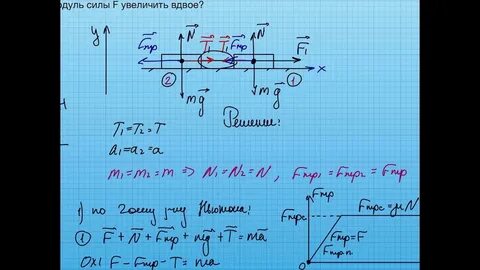 модуль силы F увеличить вдвое?
y
F⃗тр N⃗ T⃗₁ T⃗₁ F⃗тр N⃗ F⃗₁
② ① x
mg⃗ mg⃗
Решение:
T₁=T₂=T
a₁=a₂=a
m₁=m₂=m => N₁=N₂=N, Fтр₁=Fтр₂=Fтр
1) по 2ому з-ну Ньютона:
① F⃗+N⃗+F⃗тр+mg⃗+T⃗=ma⃗
OX: F-Fтр-T=ma
Fтр
Fтрс Fтрс=μN
Fтр=F
Fтр.п
0